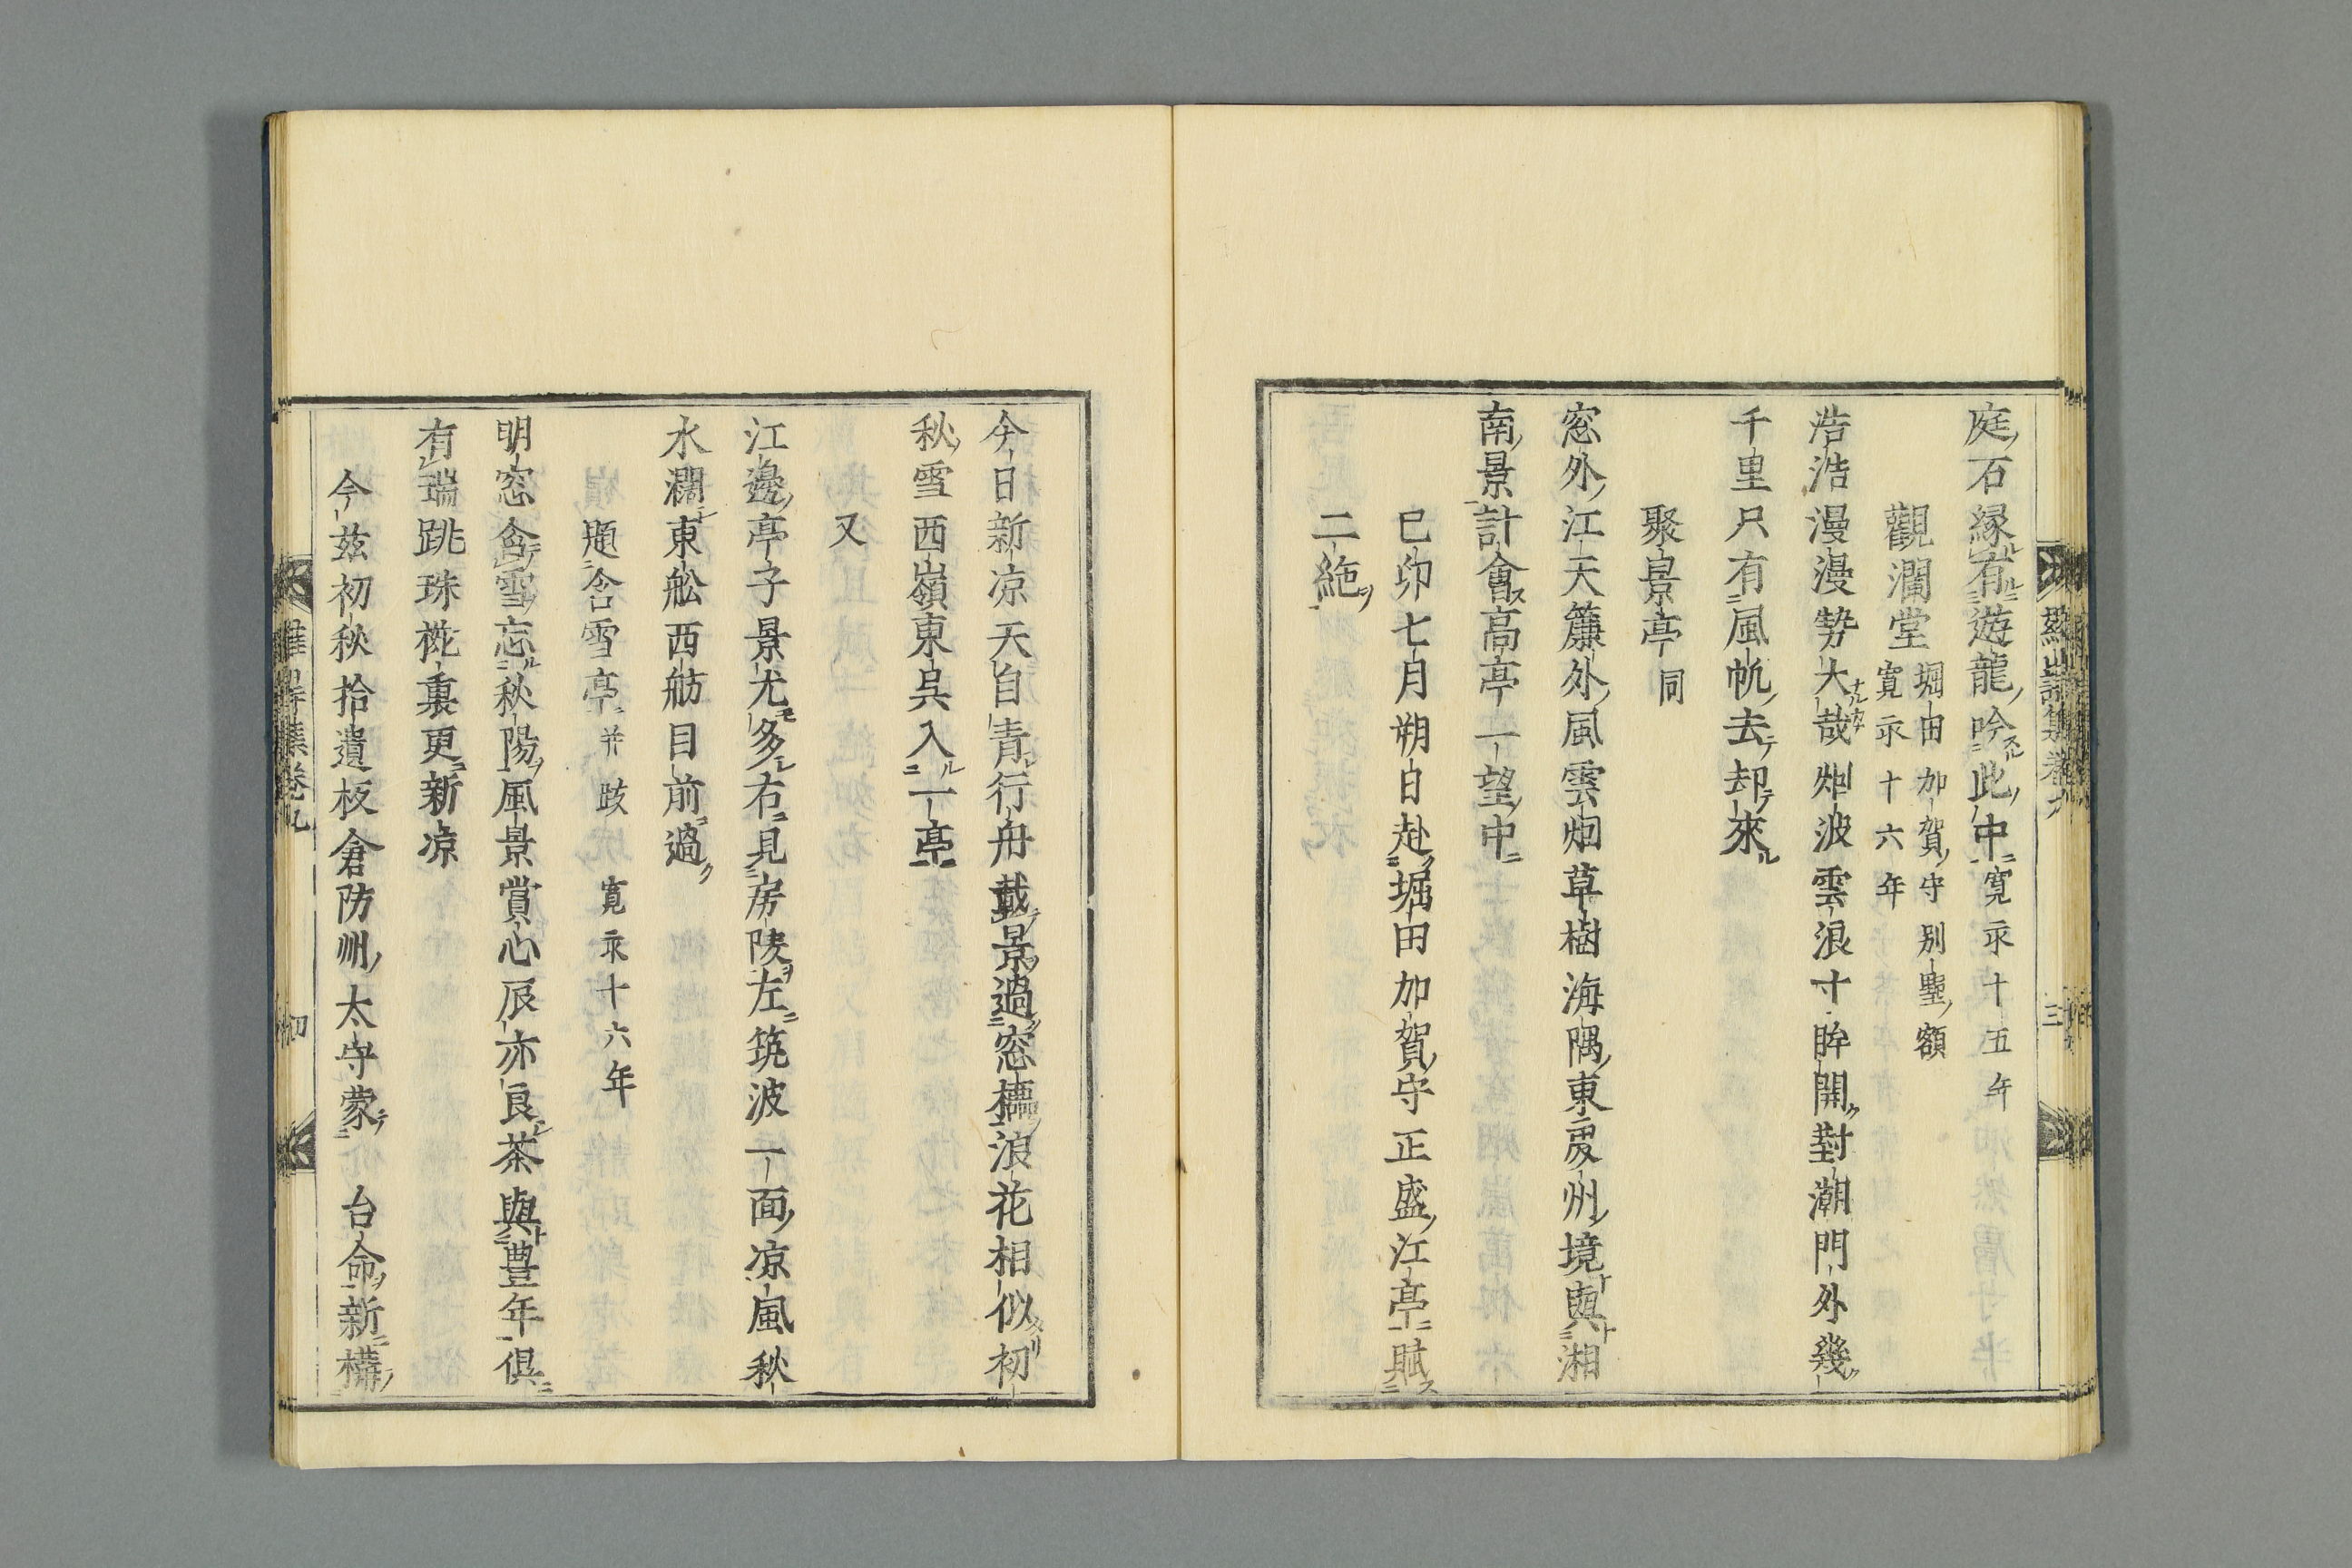 庭石縁有遊龍吟此中寛永十五年
觀瀾堂
堀田加賀守別墅額
寛永十六年
浩浩漫漫勢大哉烟波雲浪寸眸開對潮門外幾
千里只有風帆去却來
聚景亭同
窓外江天簾外風雲烟草樹海隅東憂州境與湘
南景計會高亭一望中
己卯七月朔日赴堀田加賀守正盛江亭賦
二絶
今日新凉天自青行舟載景過窓櫺浪花相似初
秋雪西嶺東呉入一亭
又
江邊亭子景尤多右見房陵左筑波一面凉風秋
水濶東舩西舫目前過
題含雪亭并跋寛永十六年
明窓含雪忘秋陽風景賞心辰亦良茶與豊年倶
有瑞跳珠椀裏更新凉
今玆初秋拾遺板倉防州太守蒙 台命新構